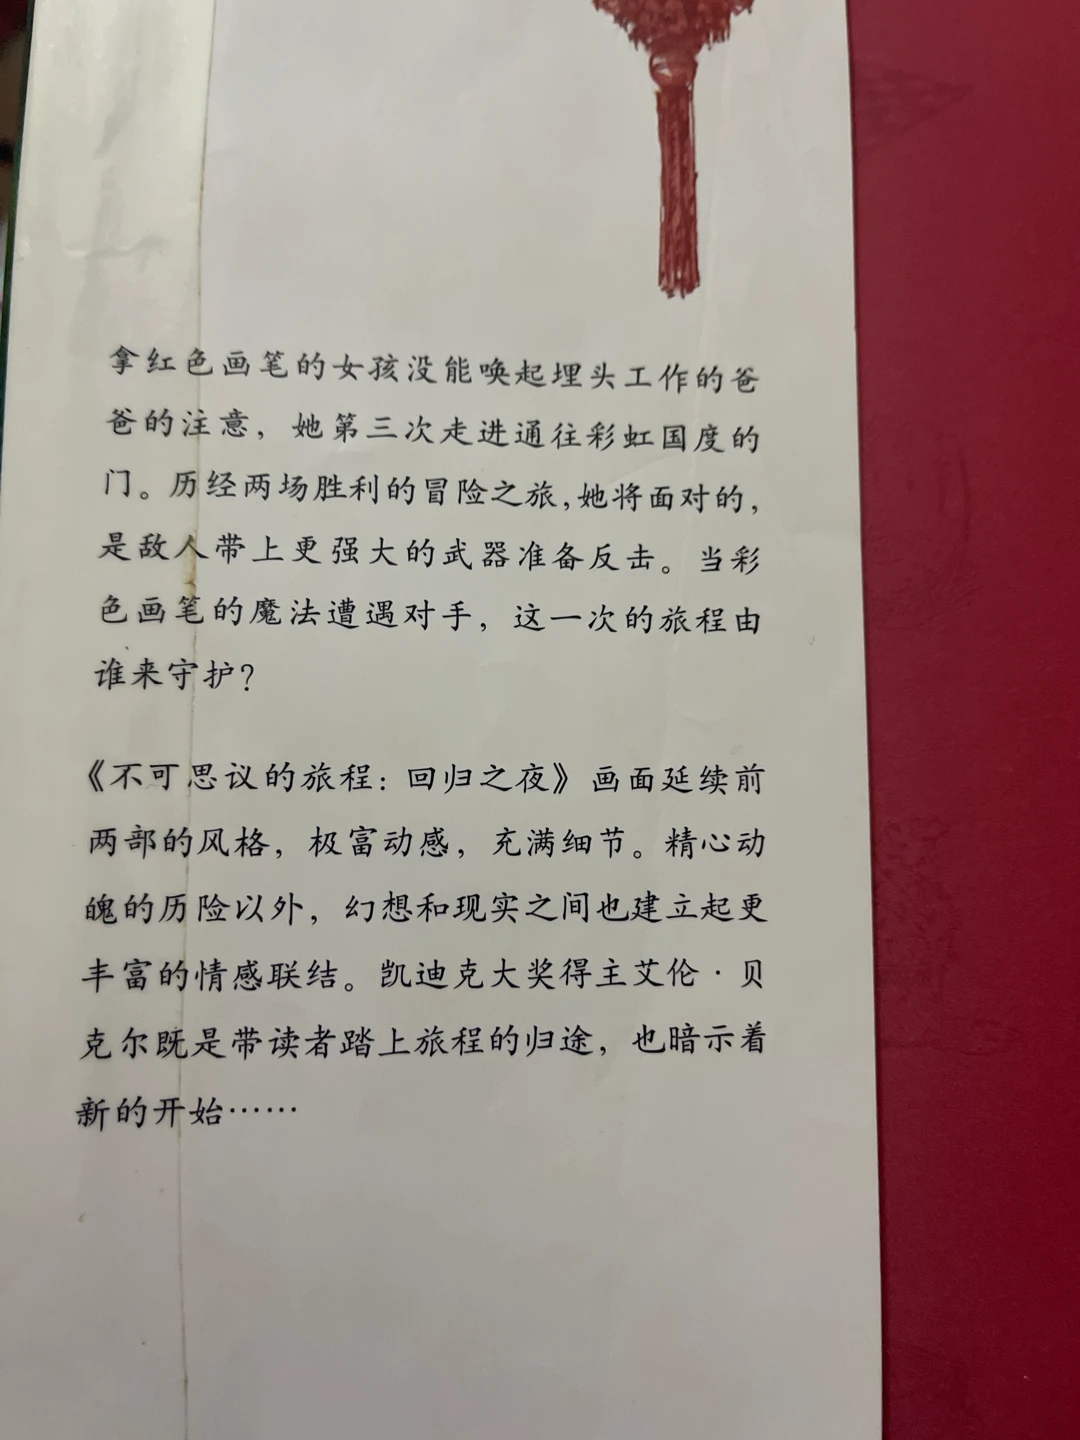 拿红色画笔的女孩没能唤起埋头工作的爸
爸的注意，她第三次走进通往彩虹国度的
门。历经两场胜利的冒险之旅，她将面对的，
是敌人带上更强大的武器准备反击。当彩
色画笔的魔法遭遇对手，这一次的旅程由
谁来守护？
《不可思议的旅程：回归之夜》画面延续前
两部的风格，极富动感，充满细节。精心动
魄的历险以外，幻想和现实之间也建立起更
丰富的情感联结。凯迪克大奖得主艾伦·贝
克尔既是带读者踏上旅程的归途，也暗示着
新的开始……